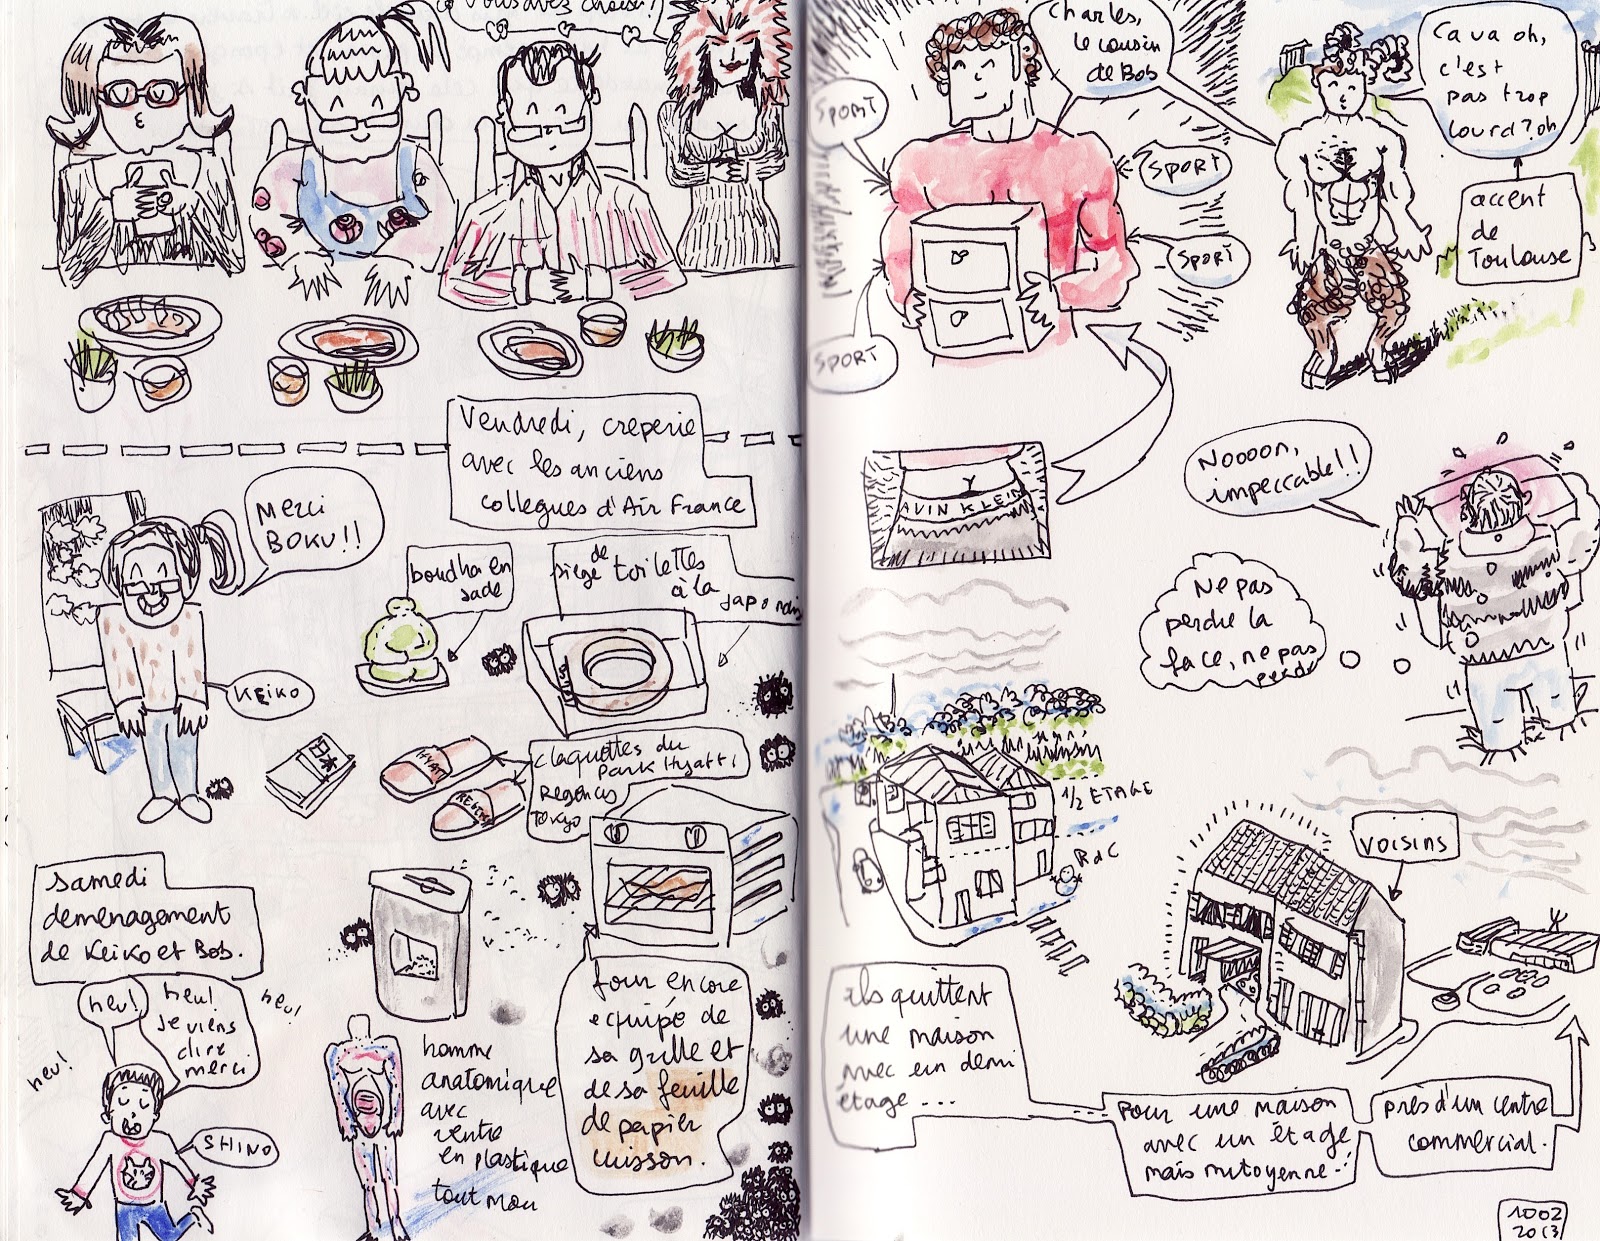 Vous avez choisi!
Vendredi, creperie
avec les anciens
collegues d'Air France
Merci
BOKU!!
KEIKO
boudha en
jade
siege de toilettes
à la
japonaise
claquettes du
Park Hyatt
REGENCY
TOKYO
HYATT
REGENCY
日本
samedi
demenagement
de Keiko et Bob.
heu!
heu!
je viens
dire
merci
heu!
heu!
SHINO
homme
anatomique
avec
ventre
en plastique
tout mou
four encore
equipé de
sa grille et
de sa feuille
de papier
cuisson.
Charles,
le cousin
de Bob
SPORT
SPORT
SPORT
SPORT
Ca va oh,
c'est
pas trop
lourd? oh
accent
de
Toulouse
AVIN KLEIN
Noooon,
impeccable!!
Ne pas
perdre la
face, ne pas
perdre
1/2 ETAGE
RdC
VOISINS
ils quittent
une maison
avec un demi
étage...
pour une maison
avec un étage
mais mitoyenne
près d'un centre
commercial.
1002
2013